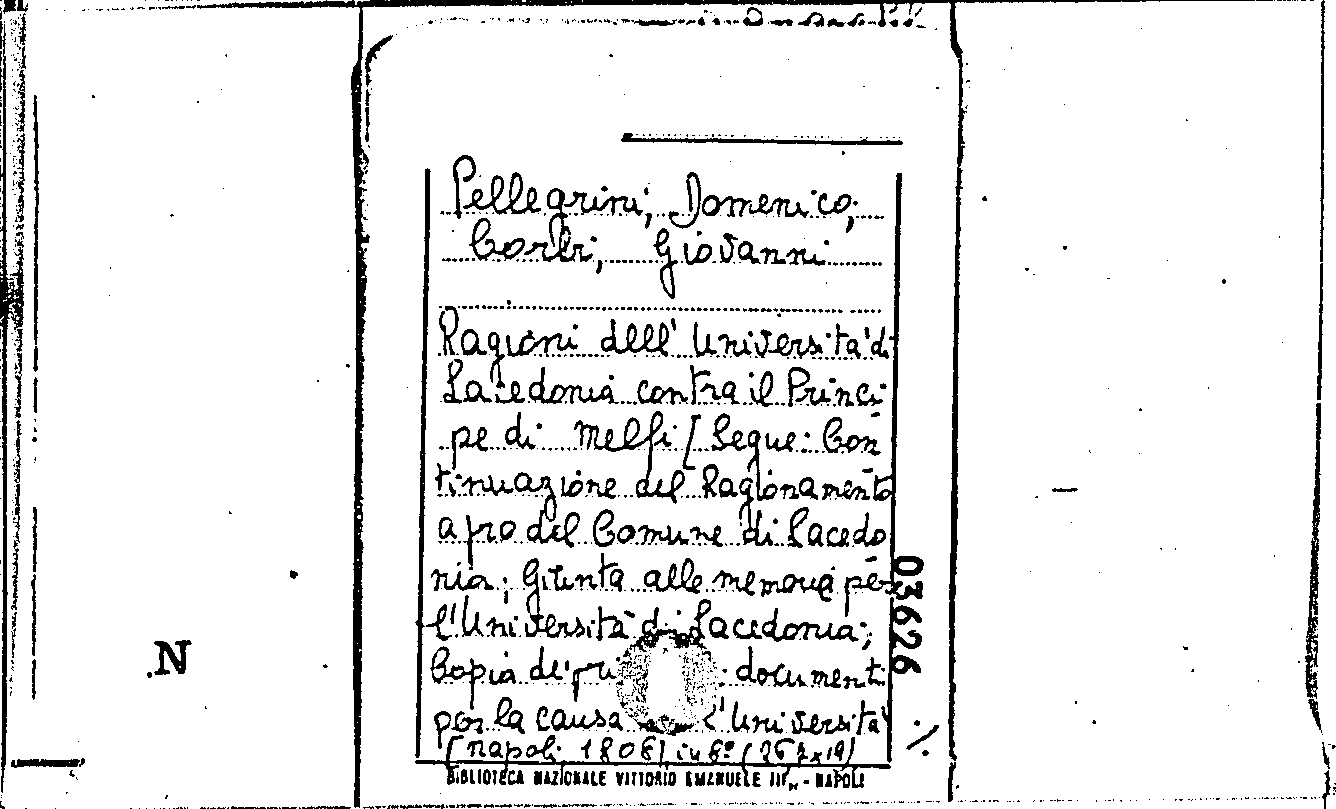 Pellegrini, Domenico,
Corbi, Giovanni
Ragioni dell' Università di
Lacedonia contra il Princi-
pe di Melfi [Segue: Con-
tinuazione del Ragionamento
a pro del Comune di Lacedo-
nia; Giunta alle memorie per
l'Università di Lacedonia;
Copia de' documenti
per la causa l'Università
[Napoli, 1808], in 8° (26,2x19)
BIBLIOTECA NAZIONALE VITTORIO EMANUELE III - NAPOLI
03626
N